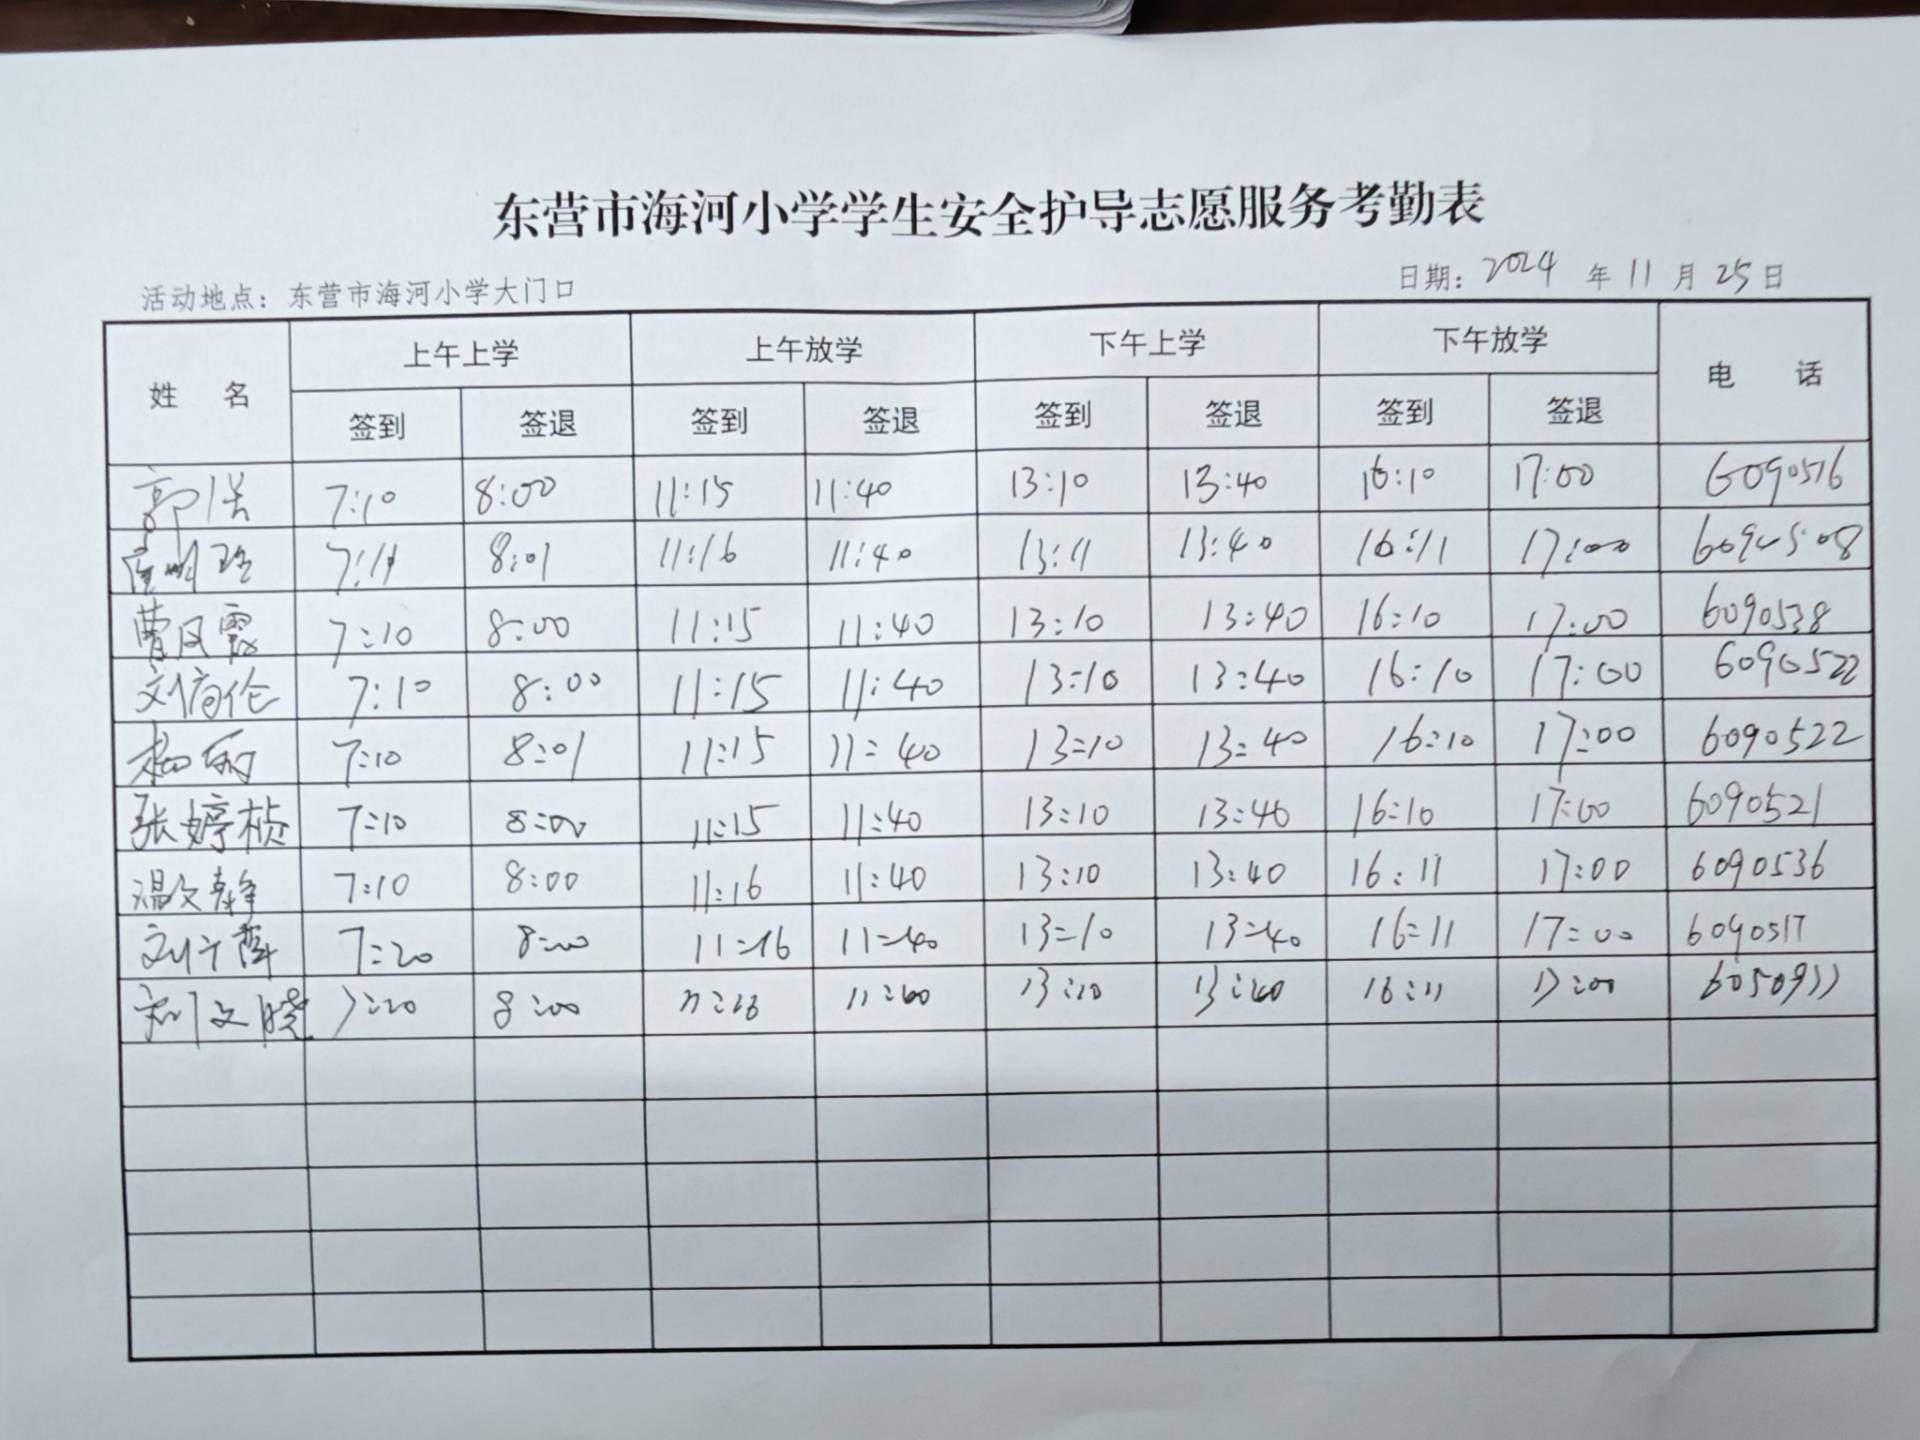 东营市海河小学学生安全护导志愿服务考勤表
活动地点：东营市海河小学大门口 日期：2024年11月25日
姓 名 上午上学 上午放学 下午上学 下午放学 电 话
签到 签退 签到 签退 签到 签退 签到 签退
郭 7:10 8:00 11:15 11:40 13:10 13:40 16:10 17:00 6090516
7:11 8:01 11:16 11:40 13:11 13:40 16:11 17:00 6090508
曹凤霞 7:10 8:00 11:15 11:40 13:10 13:40 16:10 17:00 6090538
文倩伦 7:10 8:00 11:15 11:40 13:10 13:40 16:10 17:00 6090522
杨丽 7:10 8:01 11:15 11:40 13:10 13:40 16:10 17:00 6090522
张婷桢 7:10 8:00 11:15 11:40 13:10 13:40 16:10 17:00 6090521
温文静 7:10 8:00 11:16 11:40 13:10 13:40 16:11 17:00 6090536
刘 7:20 8:00 11:16 11:40 13:10 13:40 16:11 17:00 6090517
刘文晓 7:20 8:00 11:16 11:40 13:10 13:40 16:11 17:00